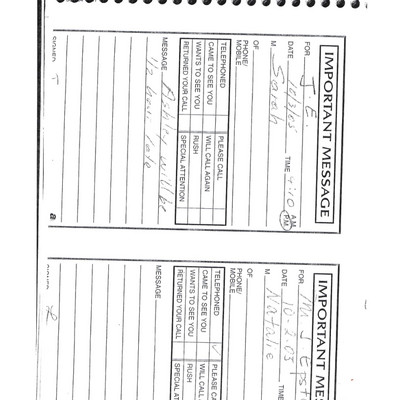 IMPORTANT MESSAGE
FOR J.E.
DATE TIME 4:40 A.M. P.M.
M Sarah
OF
PHONE/
MOBILE
TELEPHONED PLEASE CALL
CAME TO SEE YOU WILL CALL AGAIN
WANTS TO SEE YOU RUSH
RETURNED YOUR CALL SPECIAL ATTENTION
MESSAGE Ashley will be
1/2 hour late
SIGNED T
a
IMPORTANT MES
FOR Mr J Epst
DATE 10.2.03 TIME
M Natalie
OF
PHONE/
MOBILE
TELEPHONED ✓ PLEASE CAL
CAME TO SEE YOU WILL CALL A
WANTS TO SEE YOU RUSH
RETURNED YOUR CALL SPECIAL ATT
MESSAGE
SIGNED